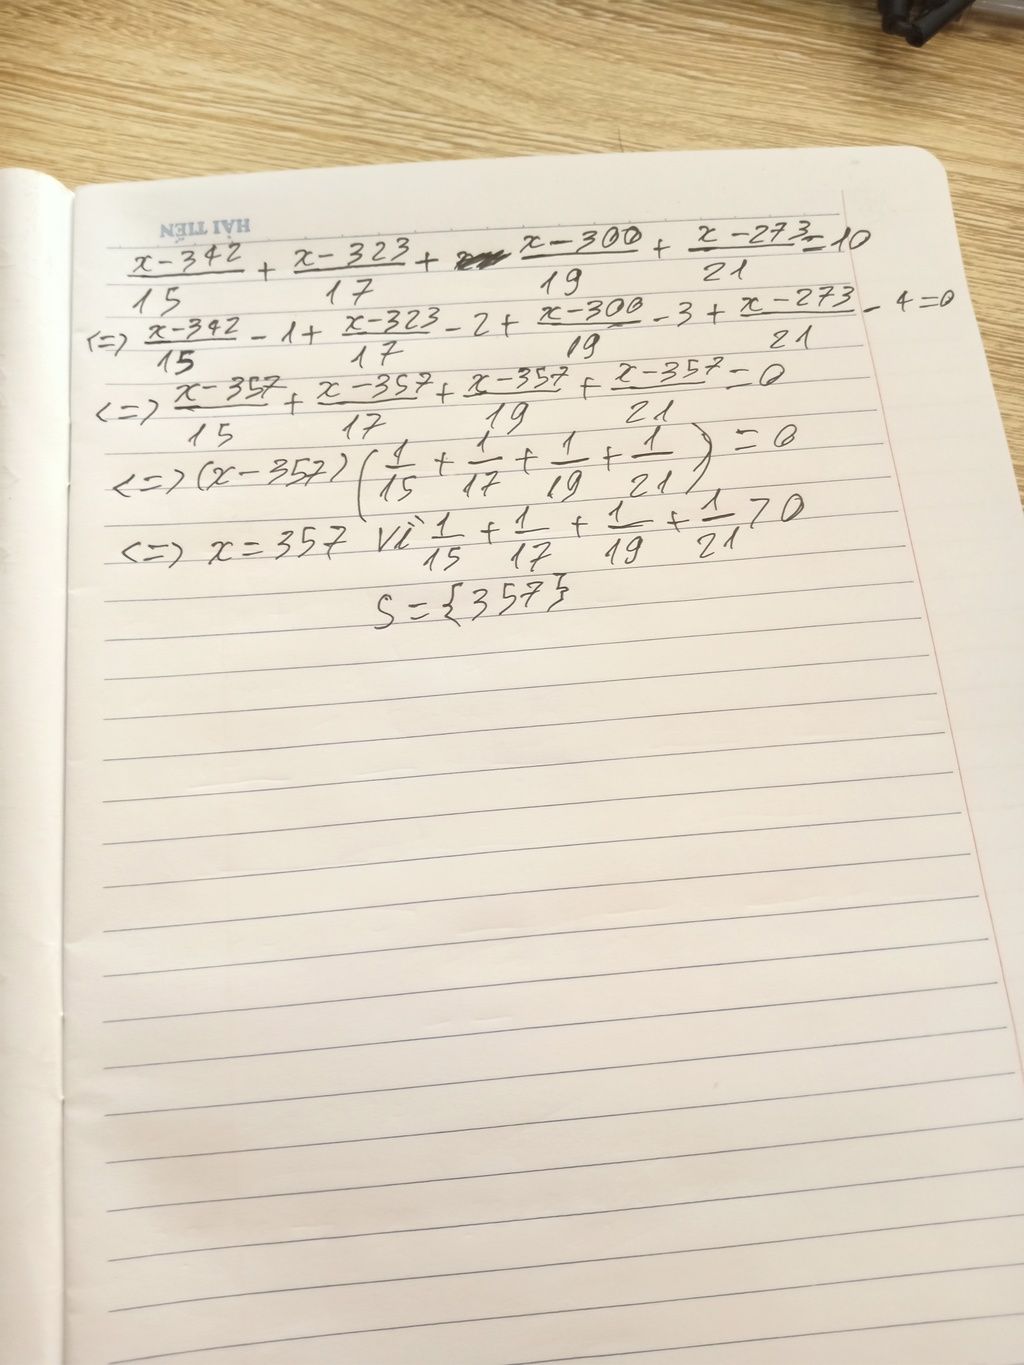 HẢI TIẾN
x-342/15 + x-323/17 + x-300/19 + x-273/21 = 10
<=> x-342/15 - 1 + x-323/17 - 2 + x-300/19 - 3 + x-273/21 - 4 = 0
<=> x-357/15 + x-357/17 + x-357/19 + x-357/21 = 0
<=> (x-357)(1/15 + 1/17 + 1/19 + 1/21) = 0
<=> x = 357 vì 1/15 + 1/17 + 1/19 + 1/21 > 0
S = {357}